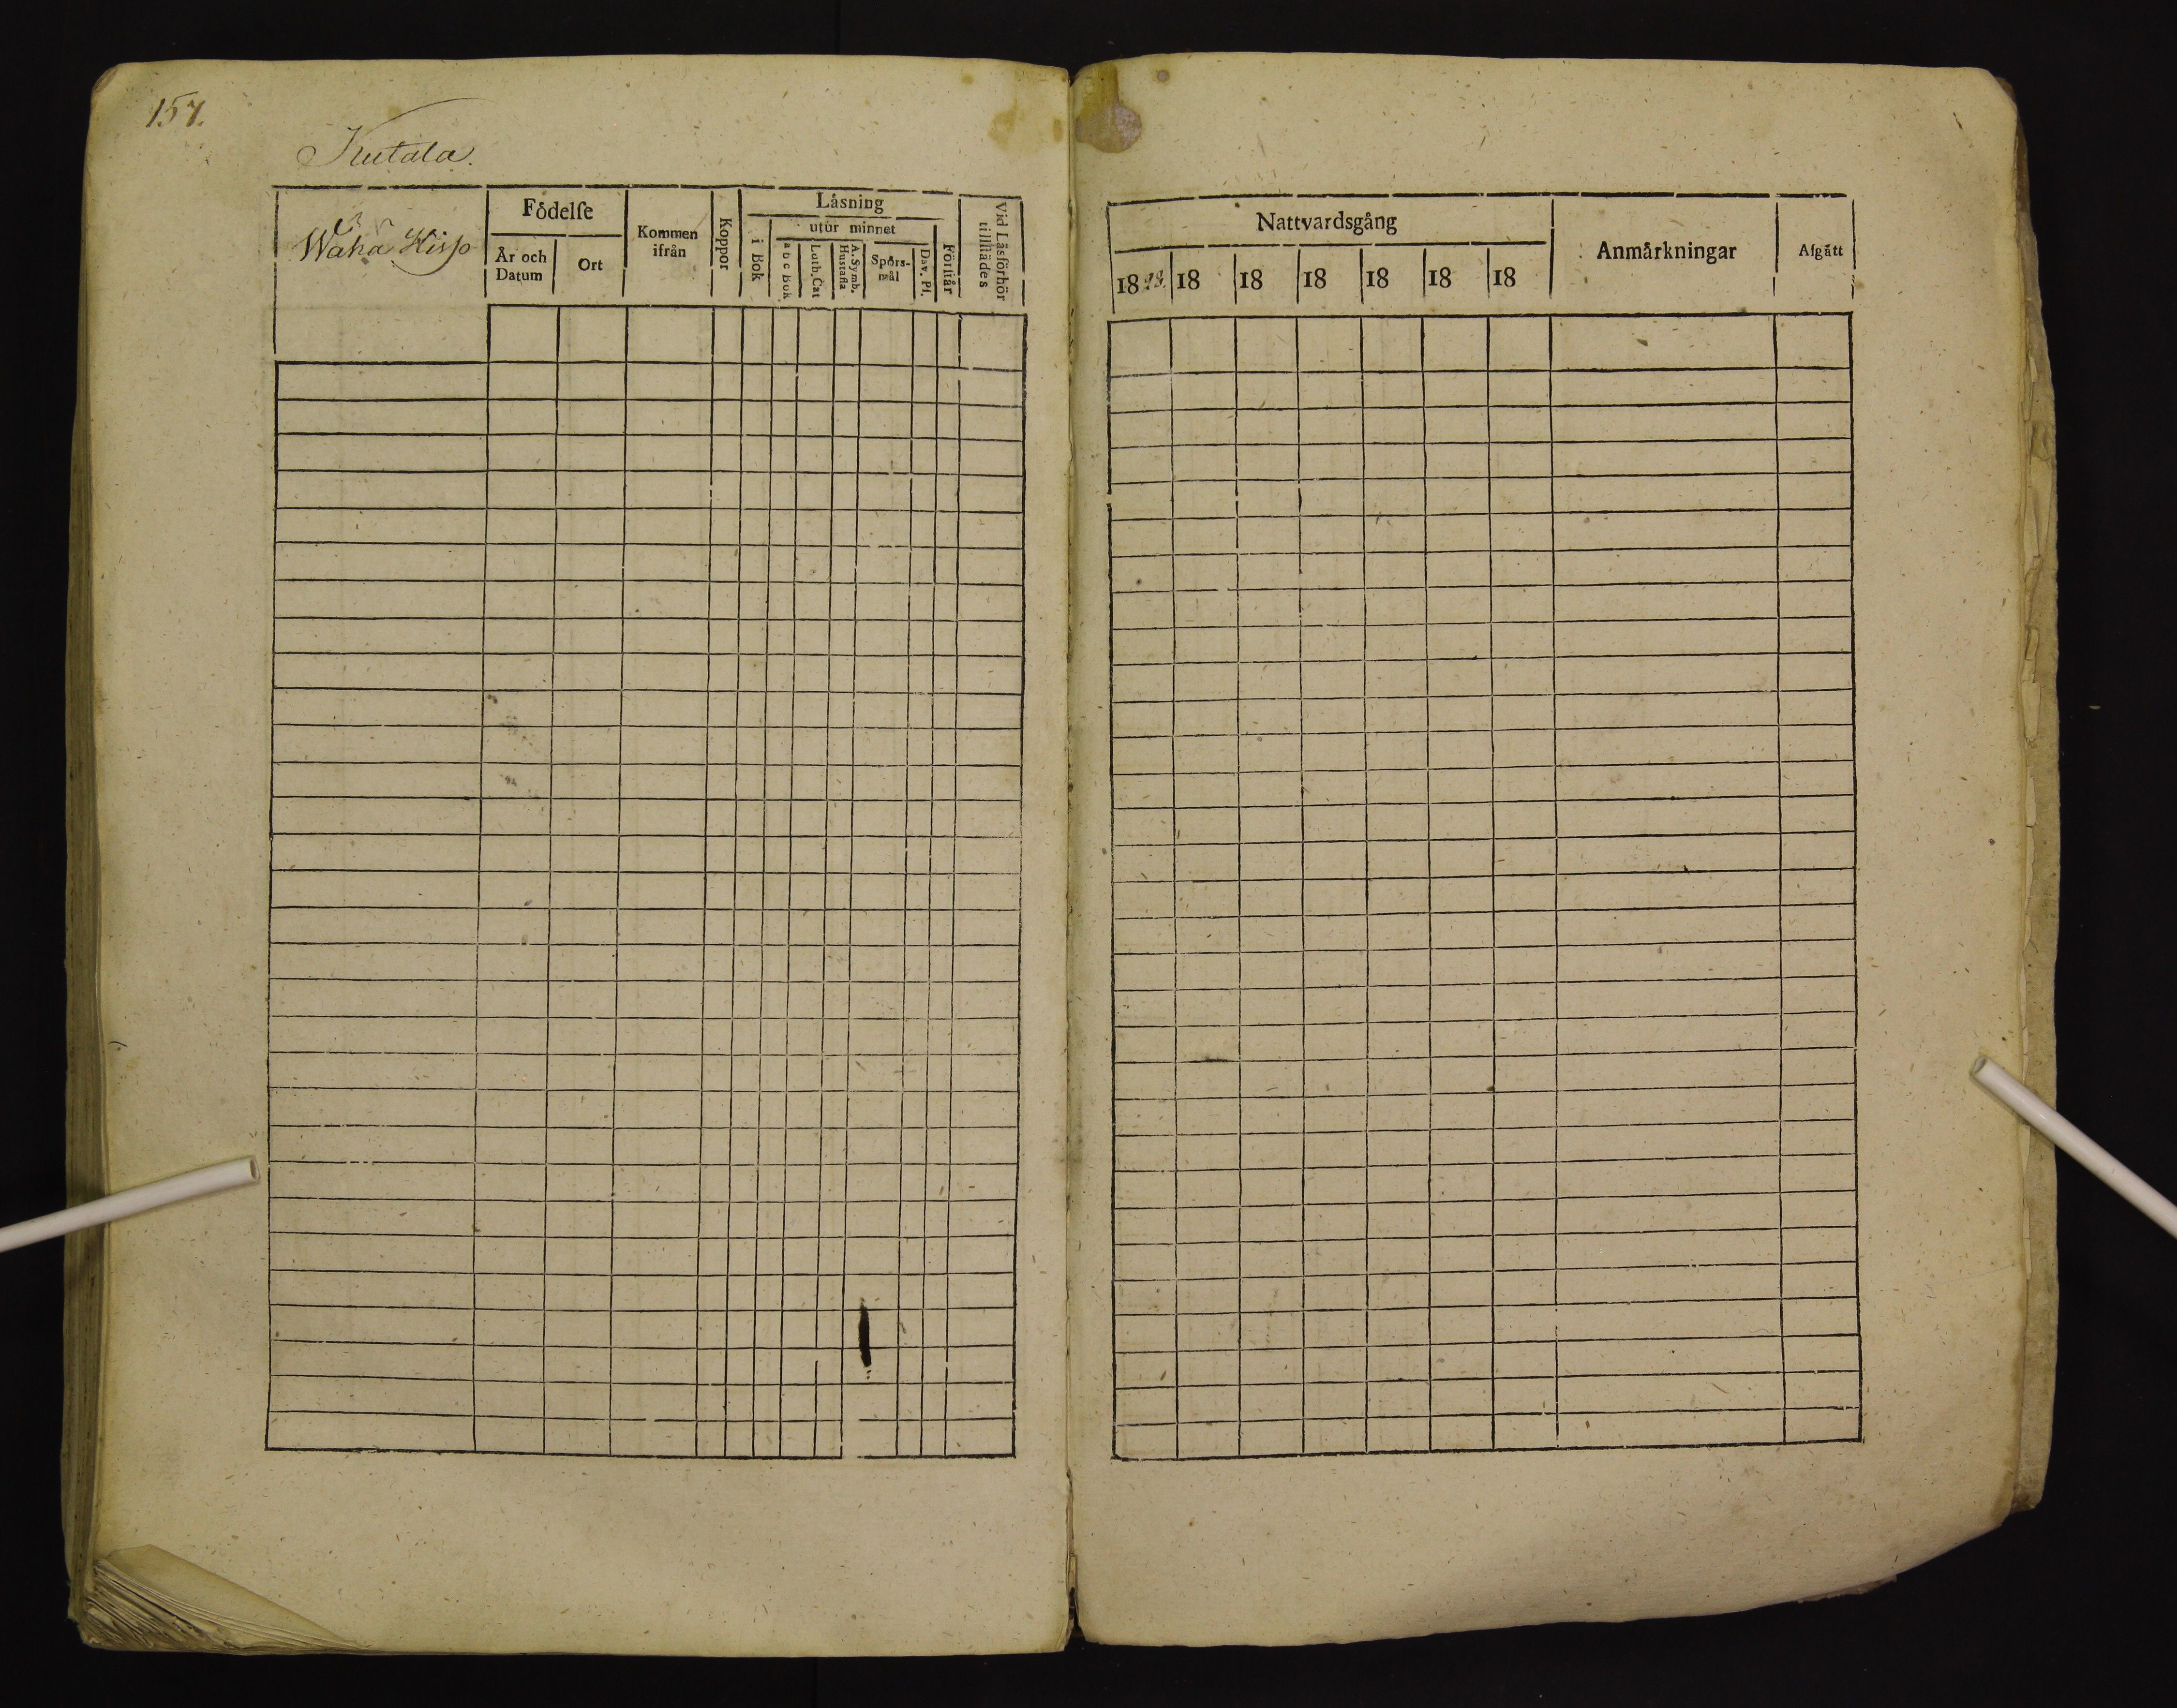 157.
Kutala.
Wäha Hissp
Födelse
År och Datum
Ort
Kommen ifrån
Koppor
Läsning
i Bok
utur minnet
a b c Bok
Luth. Cat
A. Symb. Hustafla
Spörs-mål
Dav. Ps.
Förstår
Vid Läsförhör tillstädes
Nattvardsgång
18 18 18 18 18 18 18
Anmärkningar
Afgått